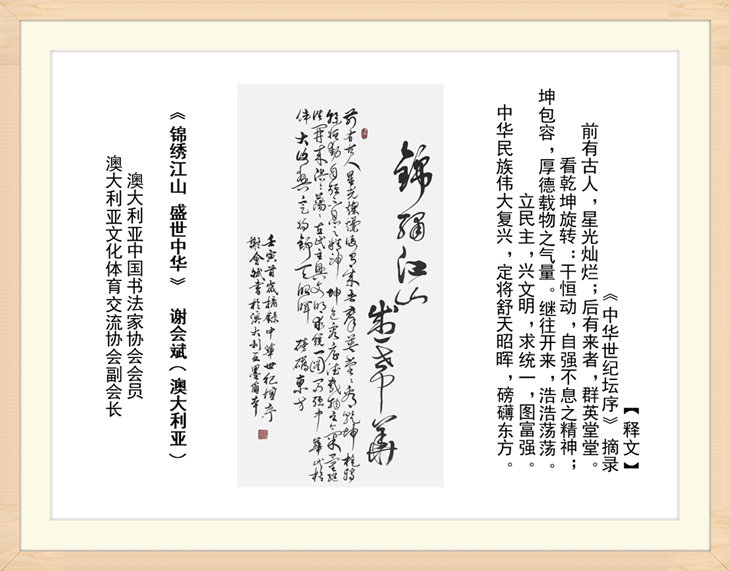 【释文】
《中华世纪坛序》 摘录
前有古人，星光灿烂；后有来者，群英堂堂。
看乾坤旋转：干恒动，自强不息之精神；
坤包容，厚德载物之气量。继往开来，浩浩荡荡。
立民主，兴文明，求统一，图富强。
中华民族伟大复兴，定将舒天昭晖，磅礴东方。
錦繡江山
盛世中華
前有古人 星光燦爛 後有來者 群英堂堂 看乾坤旋轉
乾恒動 自強不息之精神 坤包容 厚德載物之氣量 繼
往開來 浩浩蕩蕩 立民主 興文明 求統一 圖富強 中華民族
偉大復興 定將舒天昭暉 磅礴東方
壬寅首歲摘錄中華世紀壇序
謝會斌書於澳大利亞墨爾本
《 锦绣江山 盛世中华 》 谢会斌（ 澳大利亚 ）
澳大利亚中国书法家协会会员
澳大利亚文化体育交流协会副会长